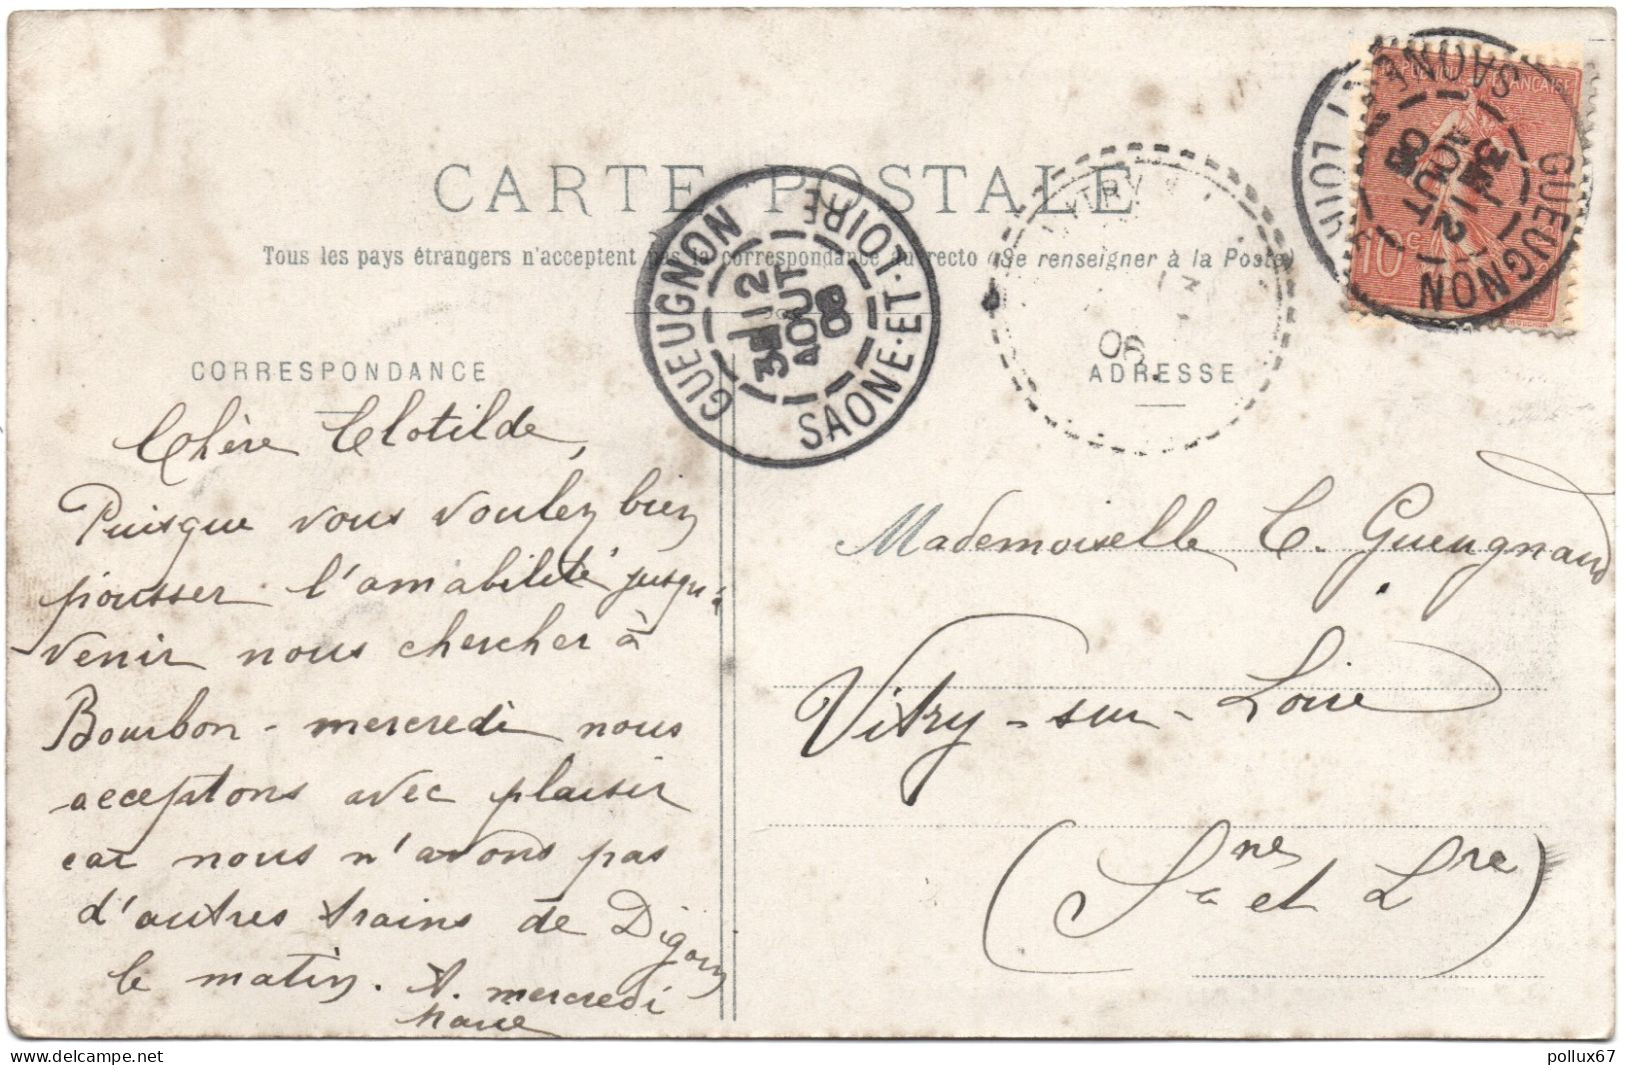 CARTE POSTALE
Tous les pays étrangers n'acceptent pas la correspondance au recto (Se renseigner à la Poste)
CORRESPONDANCE
Chère Clotilde,
Puisque vous voulez bien
pousser l'amabilité jusqu'à
venir nous chercher à
Bourbon - mercredi nous
acceptons avec plaisir
car nous n'avons pas
d'autres trains de Digoin
le matin. A. mercredi
Marie
GUEUGNON
SAONE-ET-LOIRE
3E 12
AOUT
06
06
ADRESSE
REPUBLIQUE FRANÇAISE
10c
GUEUGNON
SAONE ET LOIRE
3E 12
AOUT
06
Mademoiselle C. Gueugnaud
Vitry-sur-Loire
(Sne et Lre)
pollux67